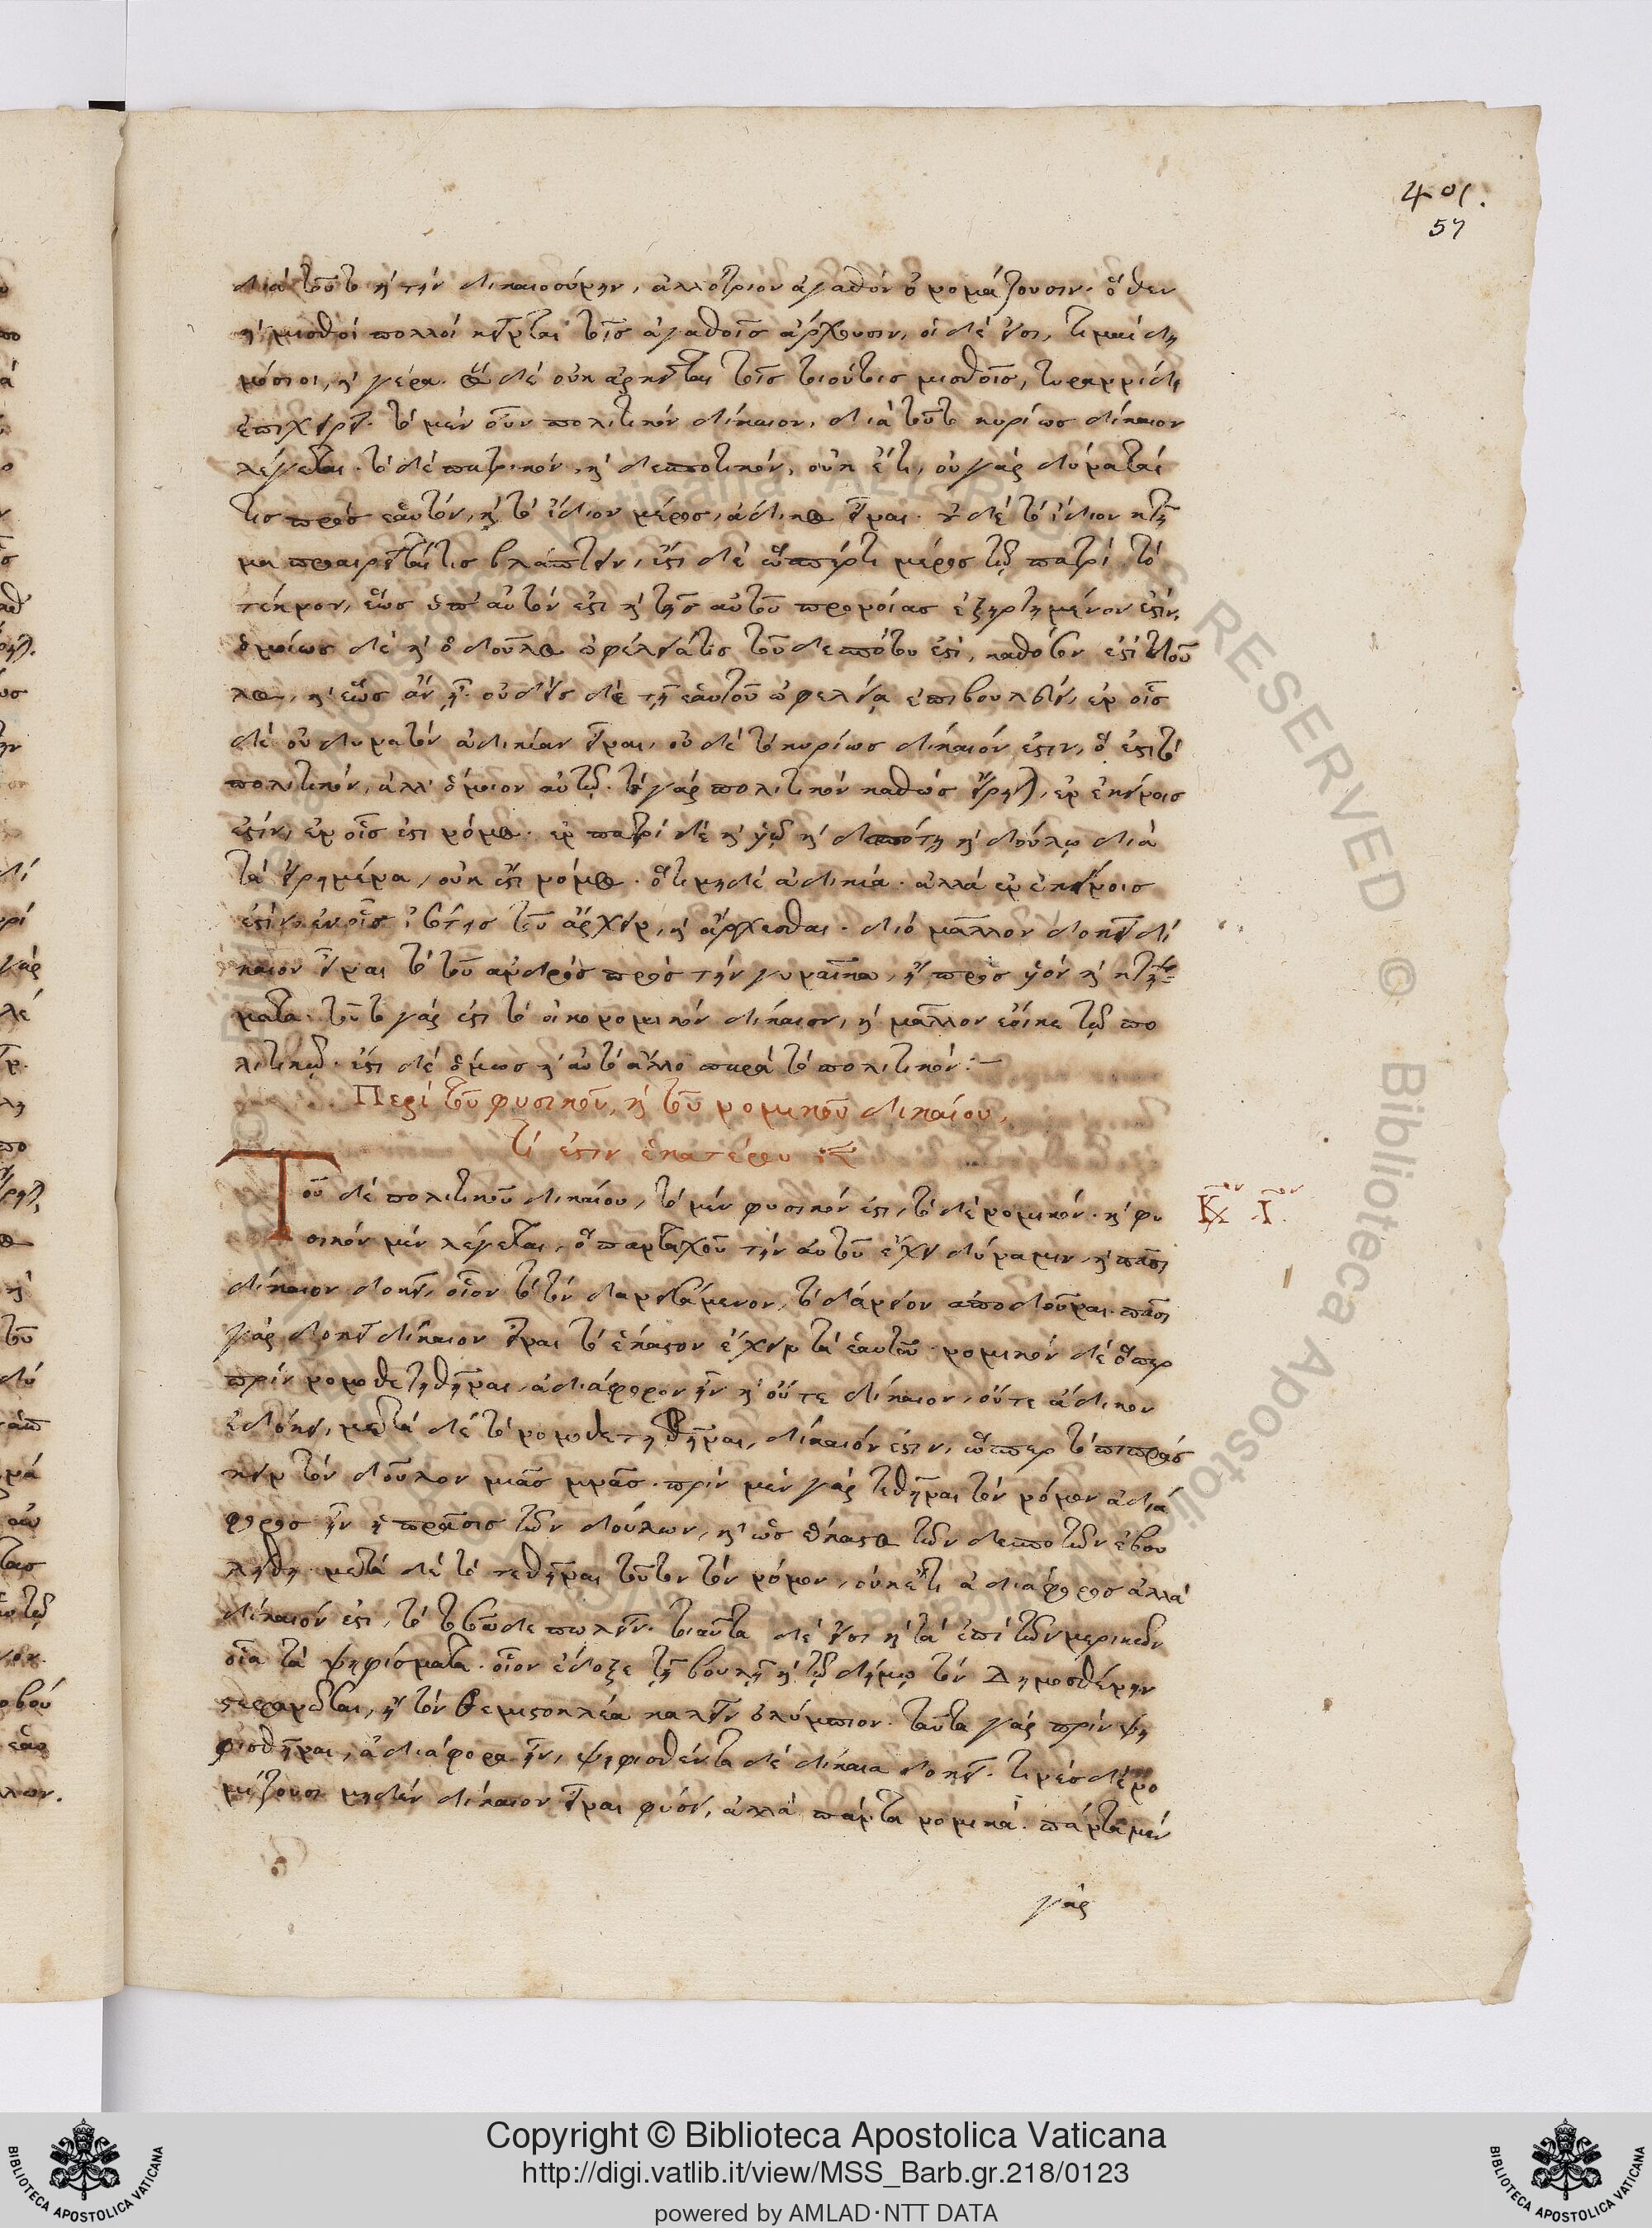 401.
57
διὰ τοῦτο καὶ τὴν δικαιοσύνην, ἀλλότριον ἀγαθὸν ὀνομάζουσιν. ὅθεν
καὶ μισθοὶ πολλοὶ κεῖνται τοῖς ἀγαθοῖς ἄρχουσιν, οἱ δέ εἰσι, τιμαὶ δη
μόσιοι, καὶ γέρα. ᾧ δὲ οὐκ ἀρκεῖται τοῖς τοιούτοις μισθοῖς, τυραννίδι
ἐπιχειρεῖ. τὸ μὲν οὖν πολιτικὸν δίκαιον, διὰ τοῦτο κυρίως δίκαιον
λέγεται. τὸ δὲ πατρικὸν, καὶ δεσποτικὸν, οὐκ ἔτι, οὐ γὰρ δύναταί
τις πρὸς ἑαυτὸν, καὶ τὸ ἴδιον μέρος, ἄδικος εἶναι. οὐδὲ τὸ ἴδιον κτῆ
μα προαιρεῖταί τις βλάπτειν, ἔστι δὲ ὥσπερ τι μέρος τῷ πατρὶ τὸ
τέκνον, ἕως ὑπ' αὐτόν ἐστι καὶ τῆς αὐτοῦ προνοίας ἐξηρτημένον ἐστίν,
ὁμοίως δὲ καὶ ὁ δοῦλος ὠφέλειά τις τοῦ δεσπότου ἐστὶ, καθόσον ἐστὶ δοῦ
λος, καὶ ἕως ἂν ᾖ. οὐδεὶς δὲ τῇ ἑαυτοῦ ὠφελείᾳ ἐπιβουλεύει, ἐν οἷς
δὲ οὐ δυνατὸν ἀδικίαν εἶναι, οὐδὲ τὸ κυρίως δίκαιόν ἐστιν, ὅ ἐστι τὸ
πολιτικὸν, ἀλλ' ὅμοιον αὐτῷ. τὸ γὰρ πολιτικὸν καθὼς εἴρηται, ἐν ἐκείνοις
ἐστὶν, ἐν οἷς ἐστι νόμος. ἐν πατρὶ δὲ καὶ υἱῷ καὶ δεσπότῃ καὶ δούλῳ διὰ
τὰ εἰρημένα, οὐκ ἔστι νόμος. ὅτι μηδὲ ἀδικία. ἀλλὰ ἐν ἐκείνοις
ἐστὶν, ἐν οἷς ἰσότης τοῦ ἄρχειν, καὶ ἄρχεσθαι. διὸ μᾶλλον δοκεῖ δί
καιον εἶναι τὸ τοῦ ἀνδρὸς πρὸς τὴν γυναῖκα, ἢ πρὸς υἱὸν καὶ κτή
ματα. τοῦτο γάρ ἐστι τὸ οἰκονομικὸν δίκαιον, καὶ μᾶλλον ἔοικε τῷ πο
λιτικῷ. ἔστι δὲ ὅμως καὶ αὐτὸ ἄλλο παρὰ τὸ πολιτικόν:—
Περὶ τοῦ φυσικοῦ, καὶ τοῦ νομικοῦ δικαίου,
τί ἐστιν ἑκατέρου
Τοῦ δὲ πολιτικοῦ δικαίου, τὸ μὲν φυσικόν ἐστι, τὸ δὲ νομικόν. καὶ φυ
σικὸν μὲν λέγεται, ὃ πανταχοῦ τὴν αὐτοῦ ἔχει δύναμιν, καὶ πᾶσι
δίκαιον δοκεῖ, οἷον τὸ τὸν δανεισάμενον, τὸ δάνειον ἀποδοῦναι. πᾶσι
γὰρ δοκεῖ δίκαιον εἶναι τὸ ἕκαστον ἔχειν τὰ ἑαυτοῦ. νομικὸν δὲ ὅπερ
πρὶν νομοθετηθῆναι, ἀδιάφορον ἦν καὶ οὔτε δίκαιον, οὔτε ἄδικον
ἐδόκει, μετὰ δὲ τὸ νομοθετηθῆναι, δίκαιόν ἐστιν, ὥσπερ τὸ πιπράσ
κειν τὸν δοῦλον μιᾶς μνᾶς. πρὶν μὲν γὰρ τεθῆναι τὸν νόμον ἀδιά
φορος ἦν ἡ πρᾶσις τῶν δούλων, καὶ ὡς ἕκαστος τῶν δεσποτῶν ἐβου
λήθη. μετὰ δὲ τὸ τεθῆναι τοῦτον τὸν νόμον, οὐκέτι ἀδιάφορος ἀλλὰ
δίκαιόν ἐστι, τὸ τοσοῦδε πωλεῖν. τοιαῦτα δέ εἰσι καὶ τὰ ἐπὶ τῶν μερικῶν
οἷα τὰ ψηφίσματα. οἷον ἔδοξε τῇ βουλῇ καὶ τῷ δήμῳ τὸν Δημοσθένην
στεφανῶσαι, ἢ τὸν θεμιστοκλέα καλεῖν ὀλύμπιον. ταῦτα γὰρ πρὶν ψη
φισθῆναι, ἀδιάφορα ἦν, ψηφισθέντα δὲ δίκαια δοκεῖ. τινὲς δὲ νο
μίζουσι μηδὲν δίκαιον εἶναι φύσει, ἀλλὰ πάντα νομικά. πάντα μὲν
γὰρ
Copyright © Biblioteca Apostolica Vaticana
http://digi.vatlib.it/view/MSS_Barb.gr.218/0123
powered by AMLAD·NTT DATA
BIBLIOTECA APOSTOLICA VATICANA
BIBLIOTECA APOSTOLICA VATICANA